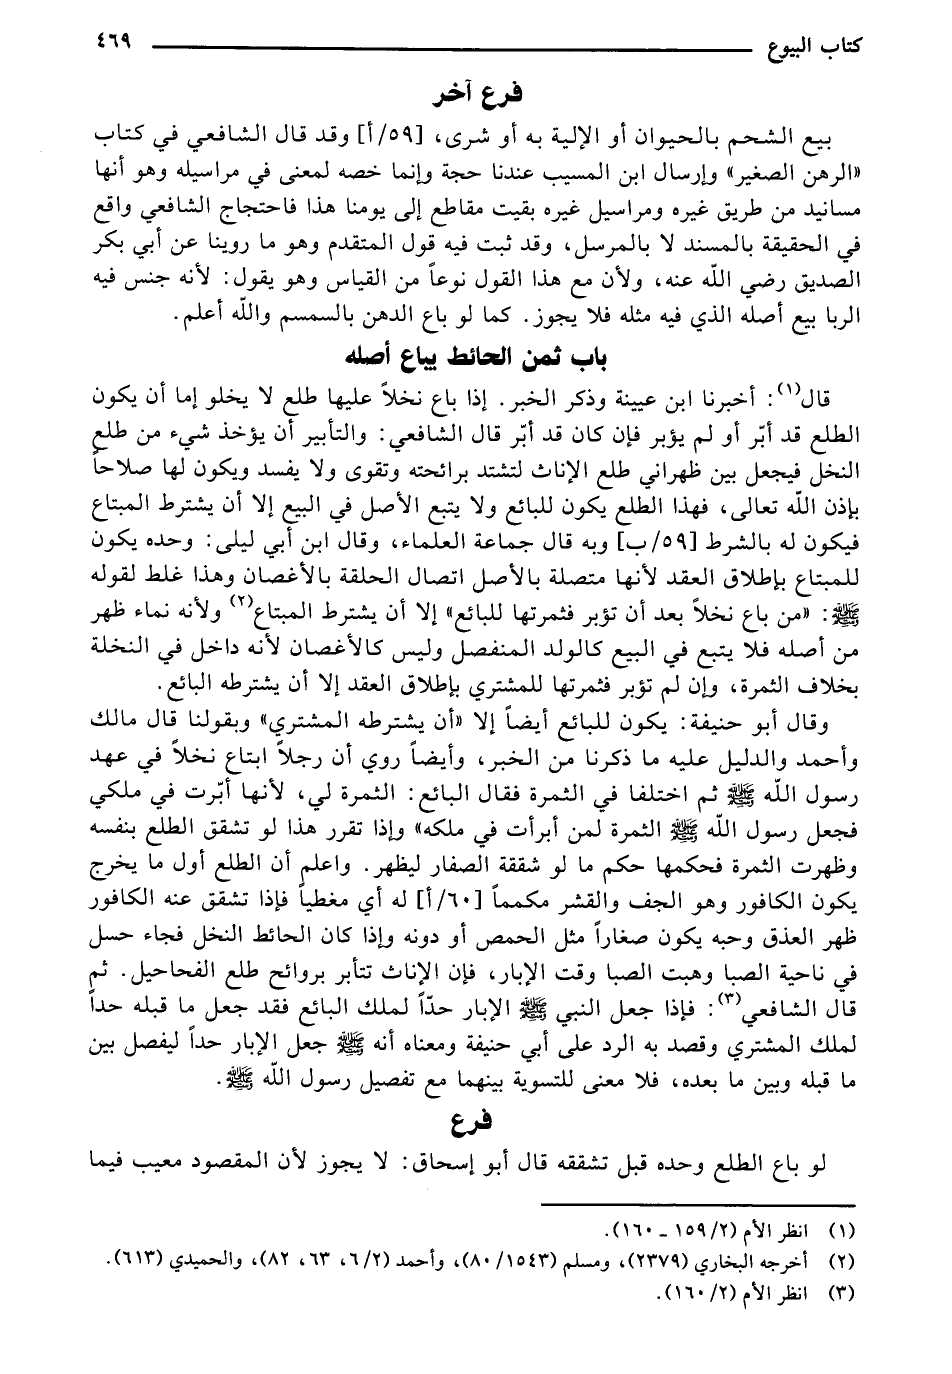 كتاب البيوع ٤٦٩
فرع آخر
بيع الشحم بالحيوان أو الإلية به أو شرى، [٥٩/أ] وقد قال الشافعي في كتاب
«الرهن الصغير» وإرسال ابن المسيب عندنا حجة وإنما خصه لمعنى في مراسيله وهو أنها
مسانيد من طريق غيره ومراسيل غيره بقيت مقاطع إلى يومنا هذا فاحتجاج الشافعي واقع
في الحقيقة بالمسند لا بالمرسل، وقد ثبت فيه قول المتقدم وهو ما روينا عن أبي بكر
الصديق رضي الله عنه، ولأن مع هذا القول نوعاً من القياس وهو يقول: لأنه جنس فيه
الربا بيع أصله الذي فيه مثله فلا يجوز. كما لو باع الدهن بالسمسم والله أعلم.
باب ثمن الحائط يباع أصله
قال(١): أخبرنا ابن عيينة وذكر الخبر. إذا باع نخلاً عليها طلع لا يخلو إما أن يكون
الطلع قد أبّر أو لم يؤبر فإن كان قد أبّر قال الشافعي: والتأبير أن يؤخذ شيء من طلع
النخل فيجعل بين ظهراني طلع الإناث لتشتد برائحته وتقوى ولا يفسد ويكون لها صلاحاً
بإذن الله تعالى، فهذا الطلع يكون للبائع ولا يتبع الأصل في البيع إلا أن يشترط المبتاع
فيكون له بالشرط [٥٩/ب] وبه قال جماعة العلماء، وقال ابن أبي ليلى: وحده يكون
للمبتاع بإطلاق العقد لأنها متصلة بالأصل اتصال الحلقة بالأغصان وهذا غلط لقوله
ﷺ: «من باع نخلاً بعد أن تؤبر فثمرتها للبائع» إلا أن يشترط المبتاع(٢) ولأنه نماء ظهر
من أصله فلا يتبع في البيع كالولد المنفصل وليس كالأغصان لأنه داخل في النخلة
بخلاف الثمرة، وإن لم تؤبر فثمرتها للمشتري بإطلاق العقد إلا أن يشترطه البائع.
وقال أبو حنيفة: يكون للبائع أيضاً إلا «أن يشترطه المشتري» وبقولنا قال مالك
وأحمد والدليل عليه ما ذكرنا من الخبر، وأيضاً روي أن رجلاً ابتاع نخلاً في عهد
رسول الله ﷺ ثم اختلفا في الثمرة فقال البائع: الثمرة لي، لأنها أبّرت في ملكي
فجعل رسول الله ﷺ الثمرة لمن أبرأت في ملكه» وإذا تقرر هذا لو تشقق الطلع بنفسه
وظهرت الثمرة فحكمها حكم ما لو شققة الصفار ليظهر. واعلم أن الطلع أول ما يخرج
يكون الكافور وهو الجف والقشر مكمماً [٦٠/أ] له أي مغطياً فإذا تشقق عنه الكافور
ظهر العذق وحبه يكون صغاراً مثل الحمص أو دونه وإذا كان الحائط النخل فجاء حسل
في ناحية الصبا وهبت الصبا وقت الإبار، فإن الإناث تتأبر بروائح طلع الفحاحيل. ثم
قال الشافعي(٣): فإذا جعل النبي ﷺ الإبار حدّاً لملك البائع فقد جعل ما قبله حداً
لملك المشتري وقصد به الرد على أبي حنيفة ومعناه أنه ﷺ جعل الإبار حداً ليفصل بين
ما قبله وبين ما بعده، فلا معنى للتسوية بينهما مع تفصيل رسول الله ﷺ.
فرع
لو باع الطلع وحده قبل تشققه قال أبو إسحاق: لا يجوز لأن المقصود معيب فيما
(١) انظر الأم (٢/ ١٥٩ ـ ١٦٠).
(٢) أخرجه البخاري (٢٣٧٩)، ومسلم (١٥٤٣/ ٨٠)، وأحمد (٢/ ٦، ٦٣، ٨٢)، والحميدي (٦١٣).
(٣) انظر الأم (٢/ ١٦٠).